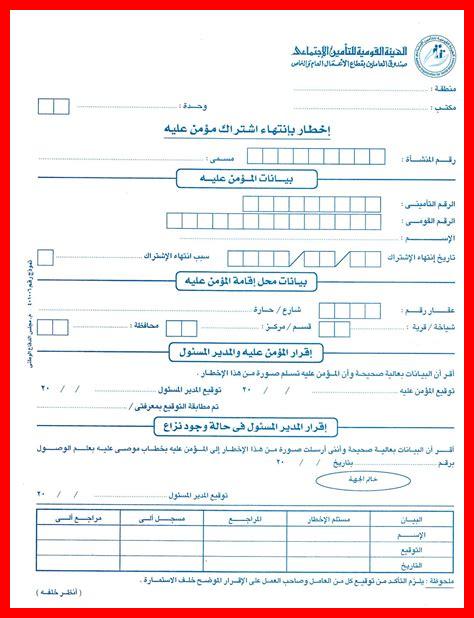 الهيئة القومية للتأمين الإجتماعى
صندوق العاملين بقطاع الأعمال العام والخاص
منطقة :
مكتب : وحدة :
إخطار بإنتهاء اشتراك مؤمن عليه
رقم المنشأة : مسمى :
بيانات المؤمن عليه
الرقم التأمينى :
الرقم القومى :
الإسم :
تاريخ إنتهاء الإشتراك سبب انتهاء الإشتراك
بيانات محل إقامة المؤمن عليه
عقار رقم : شارع / حارة
شياخة / قرية : قسم / مركز : محافظة :
إقرار المؤمن عليه والمدير المسئول
أقر أن البيانات بعالية صحيحة وأن المؤمن عليه تسلم صورة من هذا الإخطار .
توقيع المؤمن عليه / / ٢٠ توقيع المدير المسئول / / ٢٠
تم مطابقة التوقيع بمعرفتى /
إقرار المدير المسئول فى حالة وجود نزاع
أقر أن البيانات بعالية صحيحة وأننى أرسلت صورة من هذا الإخطار إلى المؤمن عليه بخطاب موصى عليه بعلم الوصول
برقم بتاريخ / / ٢٠
خاتم الجهة
توقيع المدير المسئول / / ٢٠
البيان مستلم الإخطار المراجع مسجل آلى مراجع آلى
الإسم
التوقيع
التاريخ
ملحوظة : يلزم التأكد من توقيع كل من العامل وصاحب العمل على الإقرار الموضح خلف الاستمارة .
( أنظر خلفه )